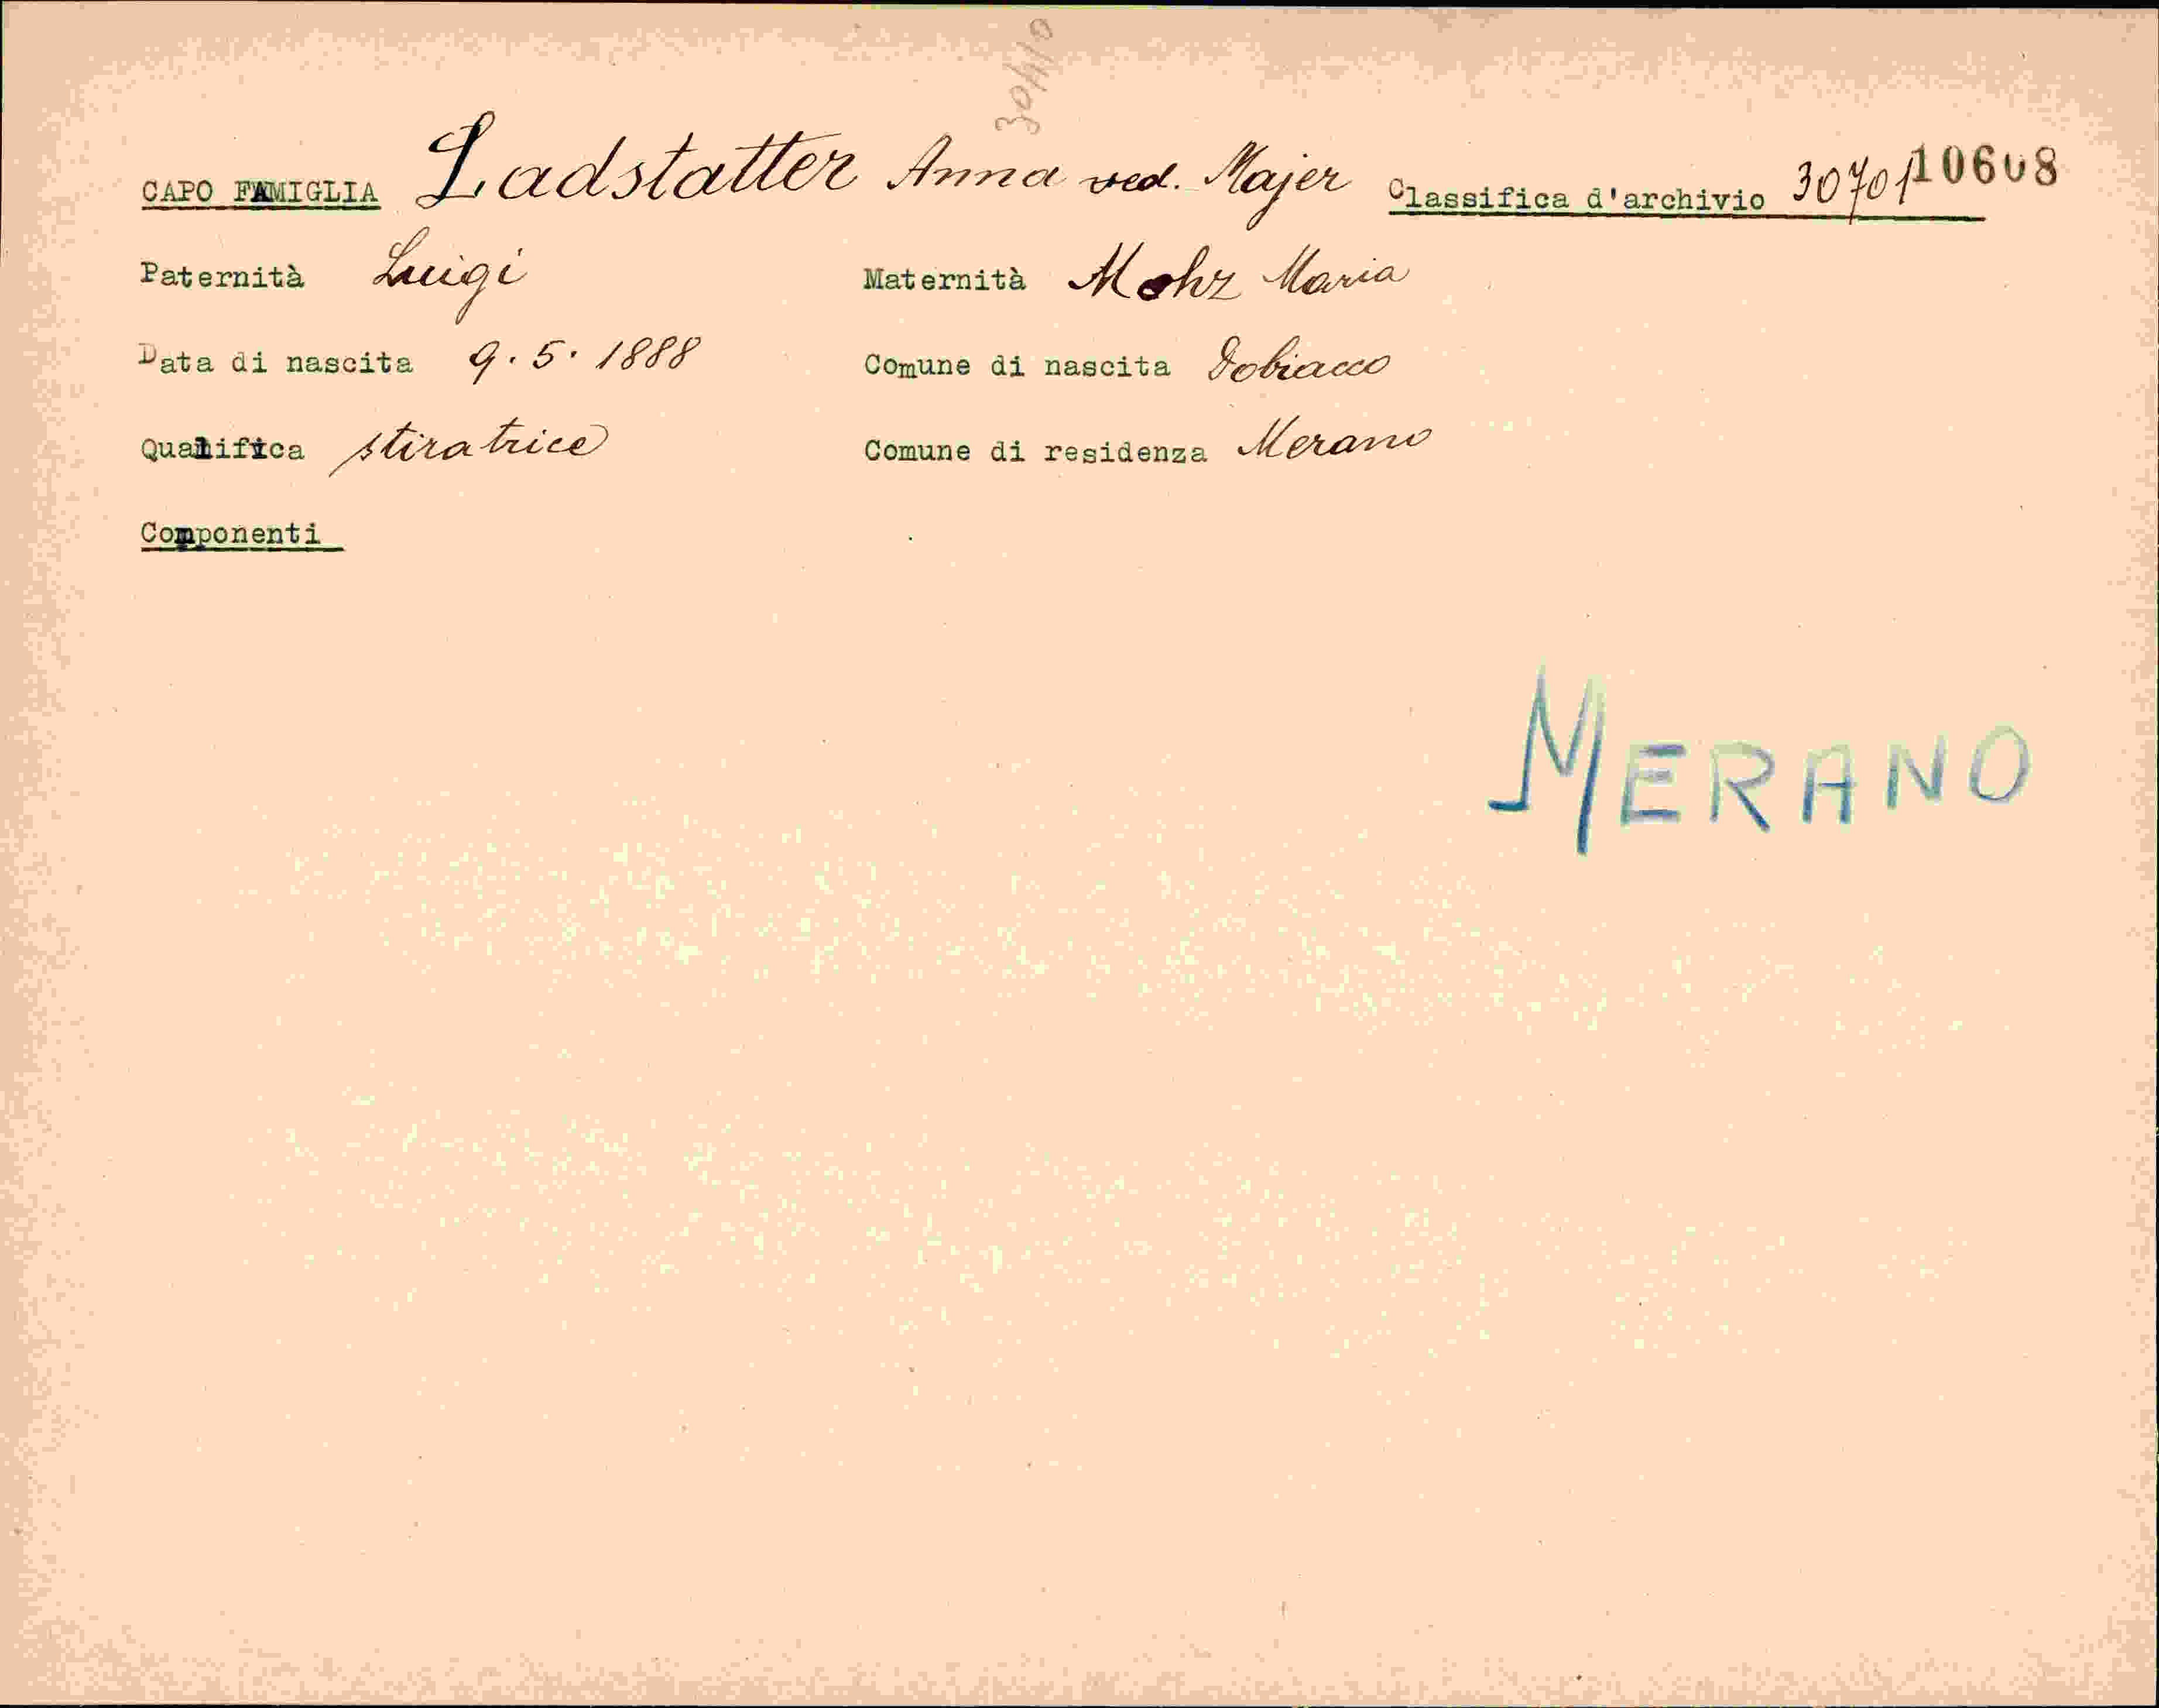 30410
CAPO FAMIGLIA Ladstatter Anna ved. Majer Classifica d'archivio 30701 10608
Paternità Luigi Maternità Mohr Maria
Data di nascita 9.5.1888 Comune di nascita Dobiacco
Qualifica stiratrice Comune di residenza Merano
Componenti
MERANO